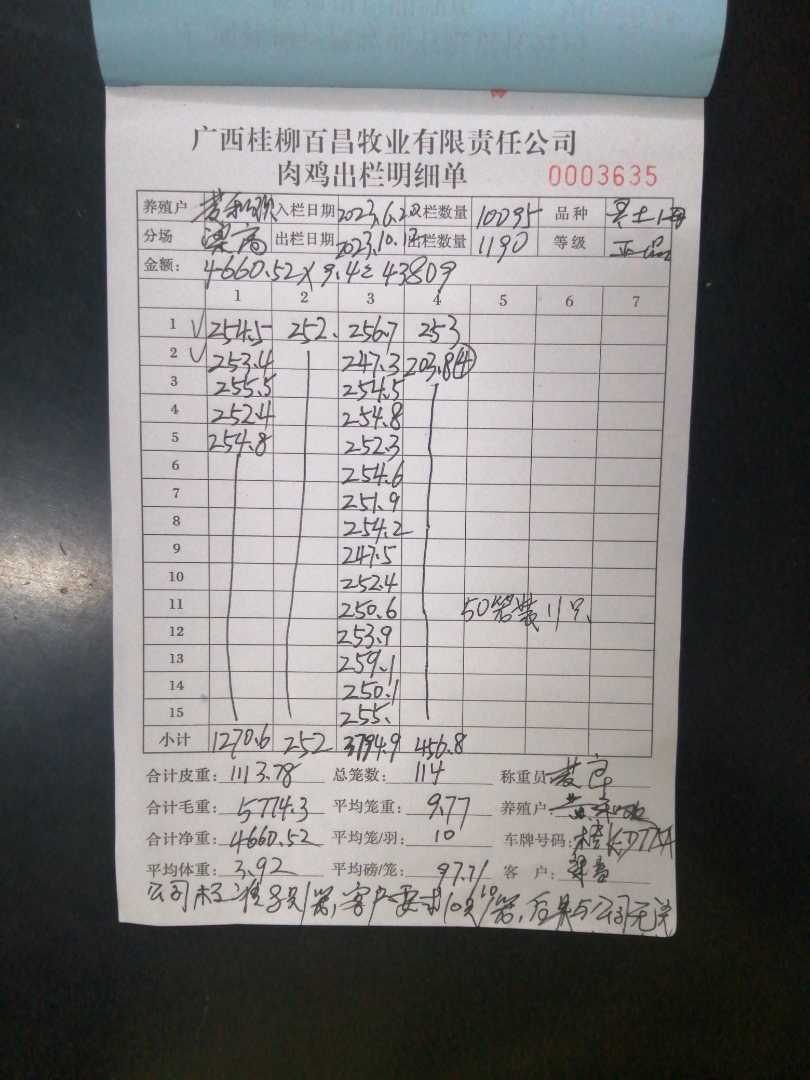 广西桂柳百昌牧业有限责任公司
肉鸡出栏明细单 0003635
养殖户 入栏日期 2023.6.2 栏数量 10095 品种
分场 出栏日期 2023.10.1 栏数量 1190 等级
金额: 4660.52×9.4=43809
1 2 3 4 5 6 7
1 √ 254.5 252. 256.7 253
2 √ 253.4 247.3 203.8④
3 255.5 254.5
4 252.4 254.8
5 254.8 252.3
6 254.6
7 251.9
8 254.2
9 247.5
10 252.4
11 250.6 50笼装11只
12 253.9
13 259.1
14 250.1
15 255.
小计 1270.6 252 3794.9 456.8
合计皮重: 1113.78 总笼数: 114 称重员
合计毛重: 5774.3 平均笼重: 9.77 养殖户:
合计净重: 4660.52 平均笼/羽: 10 车牌号码: 桂K
平均体重: 3.92 平均磅/笼: 97.71 客 户:
公司标准 只/笼,客户要求10只/笼,后果与公司无关